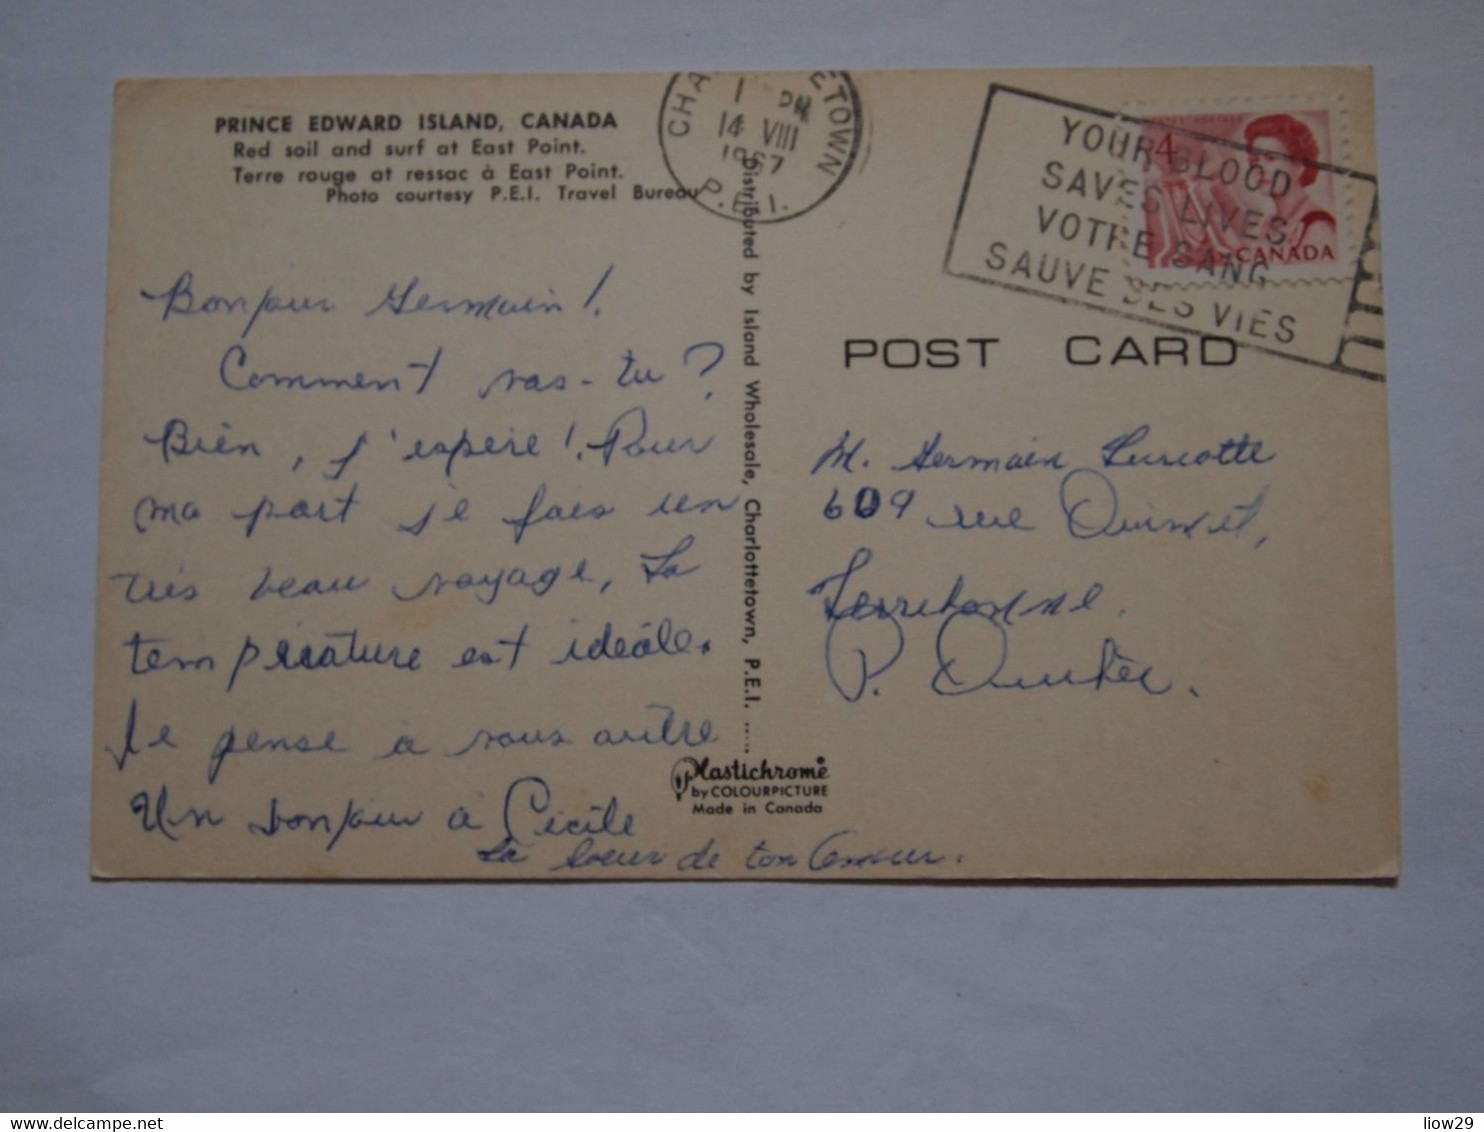 PRINCE EDWARD ISLAND, CANADA
Red soil and surf at East Point.
Terre rouge at ressac à East Point.
Photo courtesy P.E.I. Travel Bureau
Bonjour Germain!
Comment vas-tu?
Bien, j'espère! Pour
ma part je fais un
très beau voyage, La
température est idéale.
Je pense a vous autre
Un bonjour a Cécile
La soeur de ton
Distributed by Island Wholesale, Charlottetown, P.E.I. .....
Plastichrome
by COLOURPICTURE
Made in Canada
CHA ETOWN
1 PM
14 VIII
1967
P.E.I.
YOUR BLOOD
SAVES LIVES
VOTRE SANG
SAUVE DES VIES
4
CANADA
POST CARD
M. Germain Turcotte
609 rue Ouimet,
Terrebonne.
P. Québec.
delcampe.net
liow29